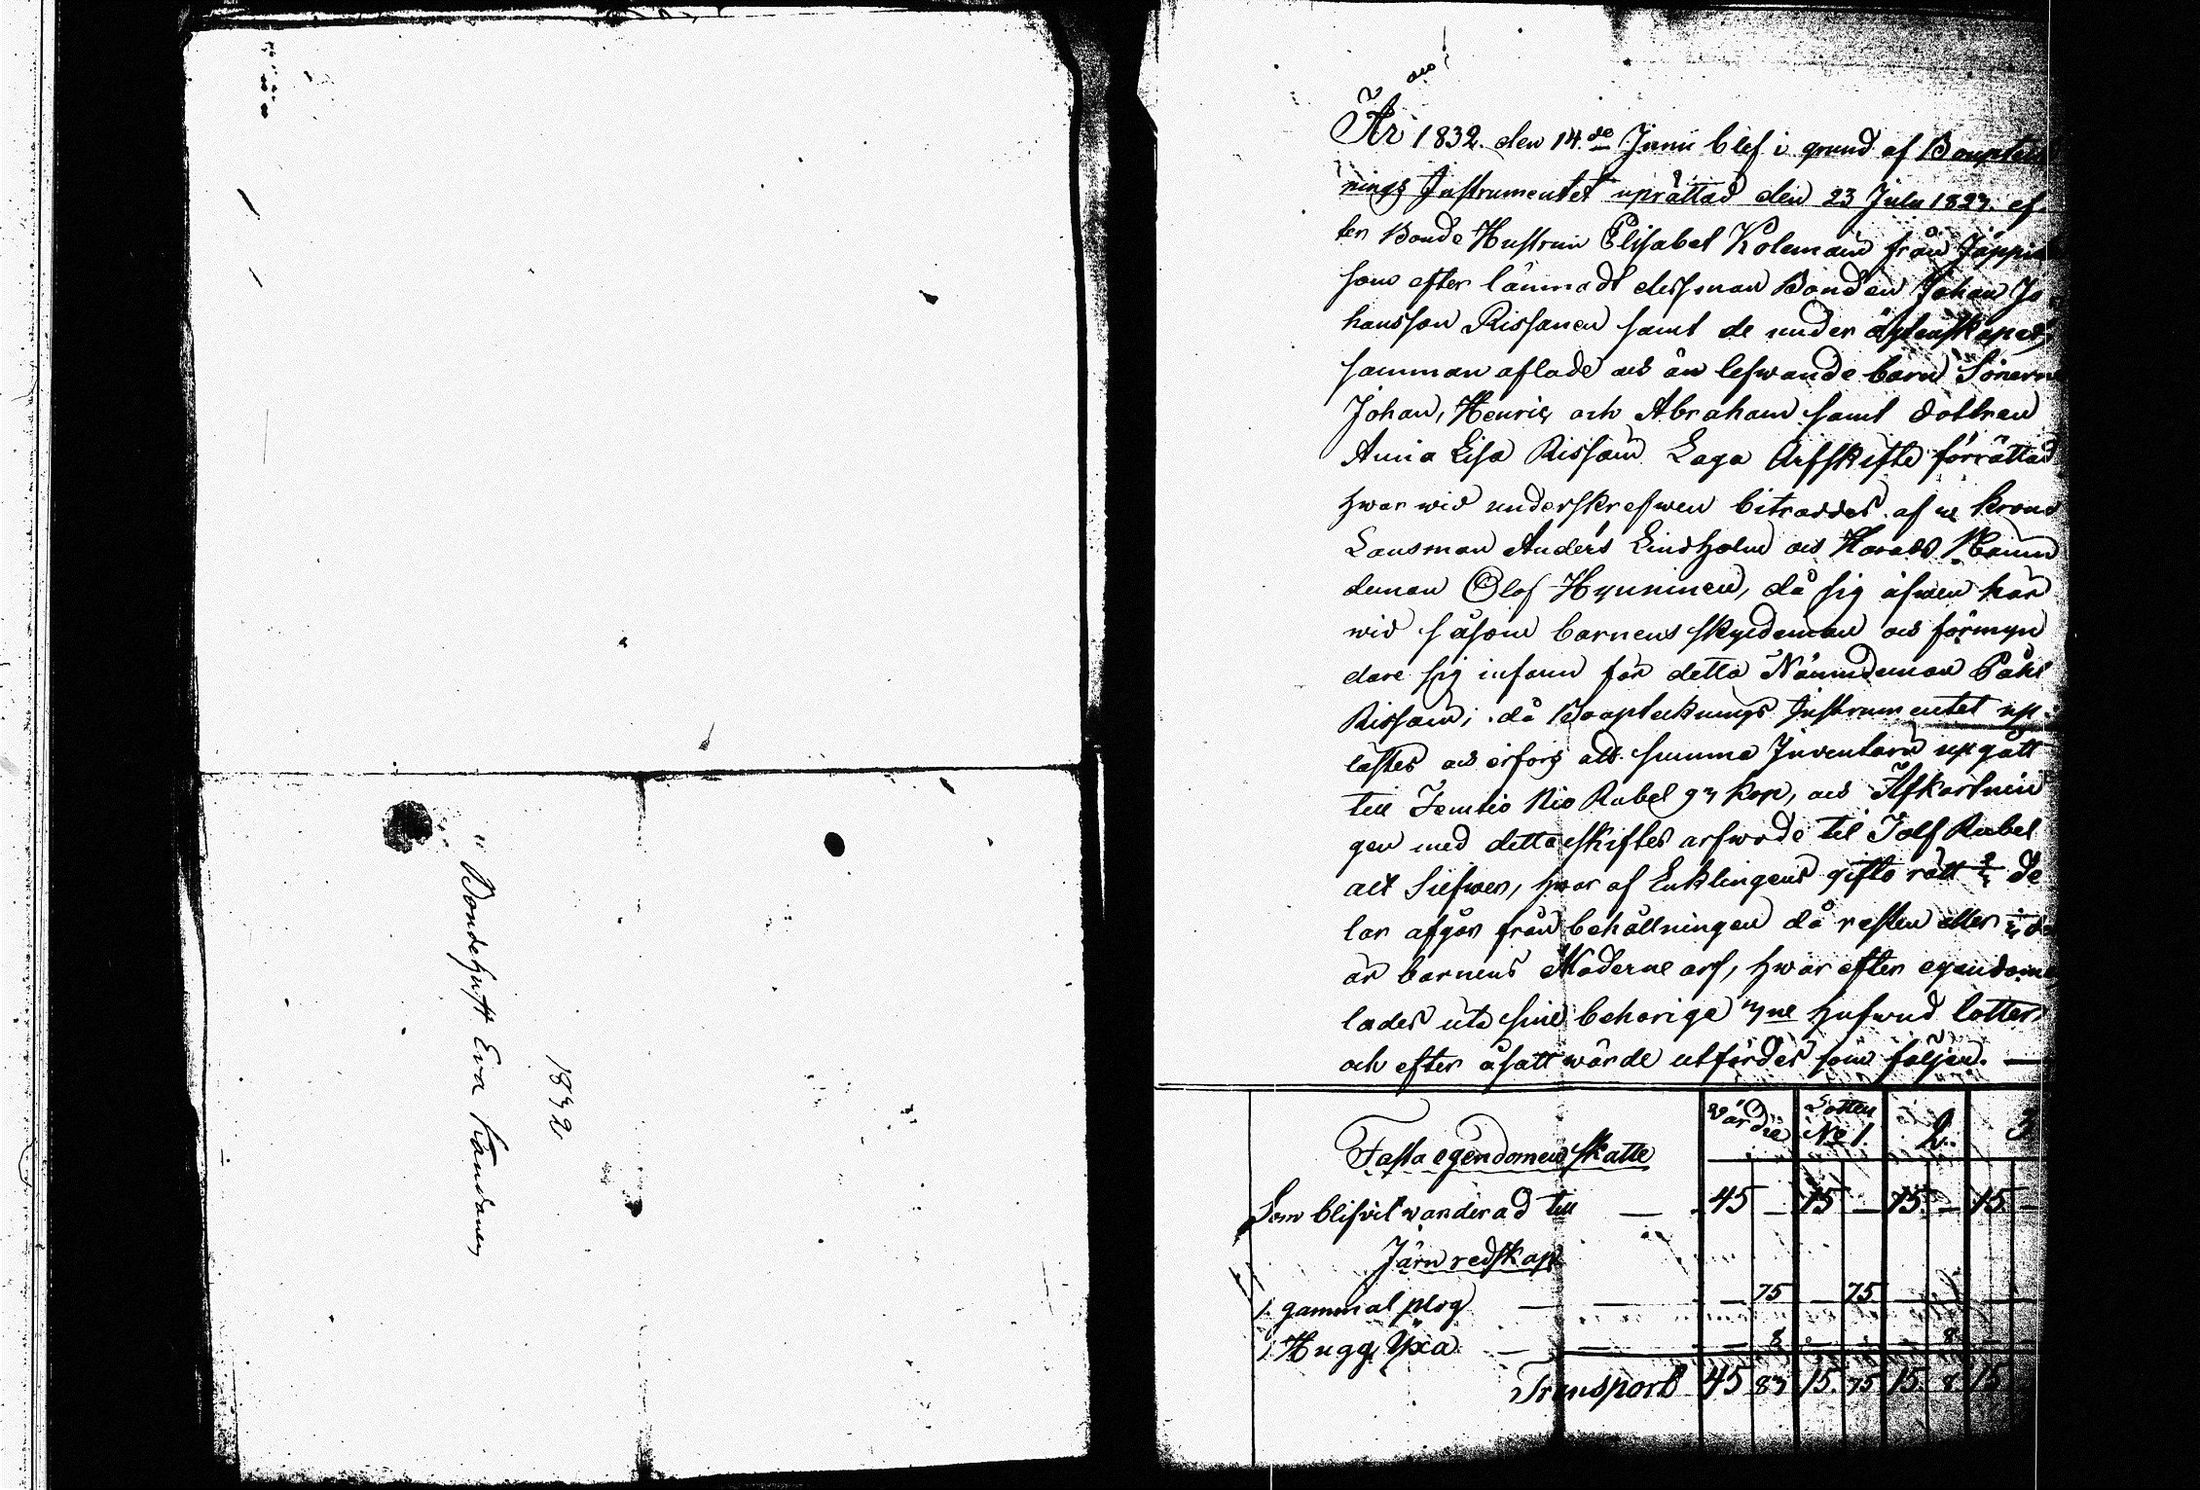 Bondehust Eva Kandanen
1832
År 1832. den 14.de Junii blef i grund af Boupteck
nings Instrumentet uprättad den 23 Julii 1823. ef
ter Bonde Hustrun Elisabet Kolemain från Jäppilä
som efter lämnadt dess man Bonden Johan Jo
hansson Rissanen samt de under ägtenskapet
samman aflade och än lefwande barn Sönerne
Johan, Henric och Abraham samt dottren
Anna Lisa Rissain Laga Arfskifte förrättad
hwar wid underskrefwen biträddes af Krono
Länsman Anders Lindholm och Härads Nämn
deman Olof Hynninen, då sig äfwen här
wid såsom barnens skyldeman och förmyn
dare sig infann för detta Nämndeman Påhl
Rissain; då Bouptecknings Instrumentet up
lästes och erfors att summa Inventarii upgått
till Femtio Nio Rubel 97 kop, och Afkortnin
gen med detta skiftes arfwode til Tolf Rubel
alt Silfwer, hwar af Enklingens gifto rätt 2/3 de
lar afgår från behållningen då resten eller 1/3 de
är barnens Moderne arf, hwar efter egendomen
lades uti sine behörige 3ne hufwud lotter,
och efter åsatt wärde utfördes som följer. —
Fasta egendomens skatte Värdie Lotten No 1. 2. 3
Som blifvit wärderad till — 45 — 15 — 15. — 15. —
Järn redskap
1. gammal plog — — — 75 — 75 — — —
1 Hugg Yxa — — — 8 — — — 8 — —
Transport 45 83 15. 75 15. 8 15